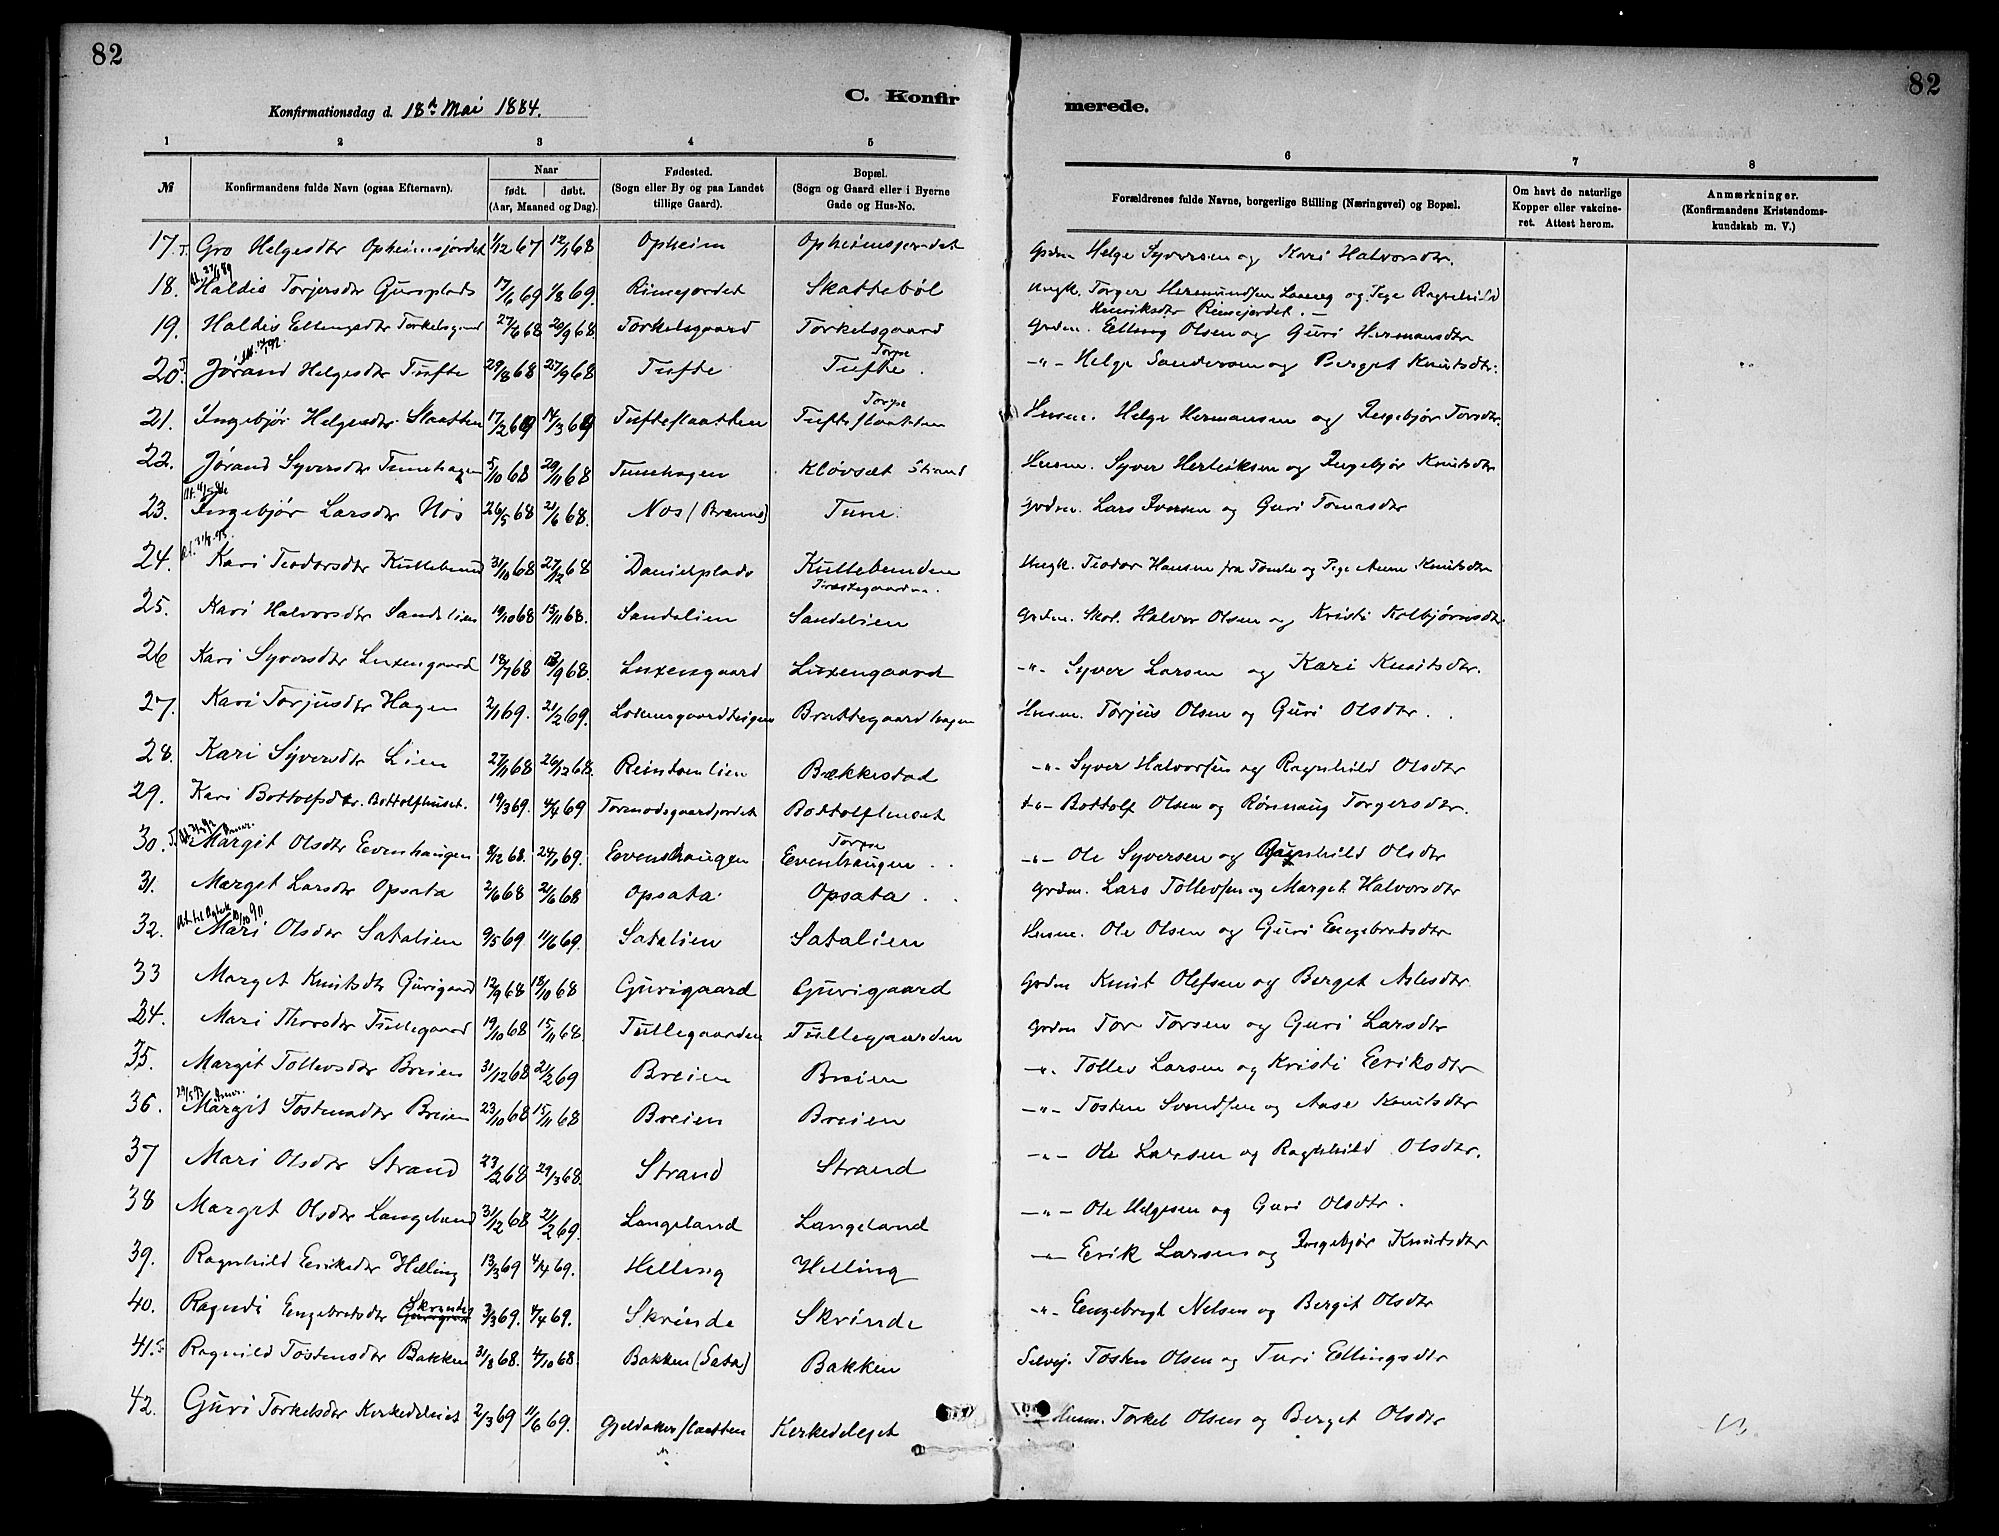 82
82
Konfirmationsdag d. 18de Mai 1884.
C. Konfir
merede.
1 2 3 4 5 6 7 8
№
Konfirmandens fulde Navn (ogsaa Efternavn).
Naar
født. døbt.
(Aar, Maaned og Dag).
Fødested.
(Sogn eller By og paa Landet
tillige Gaard).
Bopæl.
(Sogn og Gaard eller i Byerne
Gade og Hus-No.
Forældrenes fulde Navne, borgerlige Stilling (Næringsvei) og Bopæl.
Om havt de naturlige
Kopper eller vakcine-
ret. Attest herom.
Anmærkninger.
(Konfirmandens Kristendoms-
kundskab m. V.)
17. Gro Helgesdtr Opheimsjordet 1/12 67 12/1 68 Opheim Opheimsjordet Grdm Helge Syversen og Kari Halvorsdtr.
18. Haldis Torjersdtr Gusplads 17/6 69 1/8 69. Rimejordet Skattebøl Ungk. Torger Hermundsen og Pige Ragnhild
Henriksdtr Rimejordet. —
19. Haldis Ellingsdtr Torkelsgard 27/4 68 20/9 68. Torkelsgaard Torkelsgaard Grdm. Elling Olsen og Guri Hermansdtr
20. Jørand Helgesdtr Tufte 29/8 68 27/9 68 Tufte Torpe Tufte. -"- Helge Sandersen og Berget Knutsdtr.
21. Ingebjør Helgesdtr Slaatten 17/2 69 14/3 69 Tufteslaatten Torpe Tufteslaatten Husm. Helge Hermansen og Ingebjør Torsdtr.
22. Jørand Syversdtr Tunehagen 5/10 68 29/11 68 Tunehagen Kløvsæt Strand Husm. Syver Herleiksen og Ingebjør Knutsdtr
23. Ingebjør Larsdtr Nos 26/5 68 21/6 68. Nos (Brenne) Tune. Grdm. Lars Iversen og Guri Tomasdtr
24. Kari Teodorsdtr Kullebund 31/10 68 27/12 68 Danielplads Kullebunden Ungk. Teodor Hansen fra og Pige Anne Knutsdtr
Præstegaarden.
25. Kari Halvorsdtr Sandelien 19/10 68 15/11 68. Sandelien Sandelien Grdm. Skol. Halvor Olsen og Kristi Kolbjørnsdtr.
26 Kari Syversdtr Luxengaard 18/7 68 13/9 68. Luxengaard Luxengaard -"- Syver Larsen og Kari Knutsdtr.
27. Kari Torjusdtr Hagen 2/1 69. 21/2 69. Brattegaardhagen Husm. Torjus Olsen og Guri Olsdtr.
28. Kari Syversdtr Lien 27/11 68 26/12 68. Reintonlien Bækkestad -"- Syver Halvorsen og Ragnhild Olsdtr
29. Kari Bottolfsdtr. Bottolfhuset. 19/3 69. 4/4 69 Tormodsgaardjordet Bottolfhuset -"- Bottolf Olsen og Rønnaug Torgersdtr.
30. Margit Olsdtr Eevenhaugen 8/12 68. 24/1 69. Eevenshaugen Torpe Eevenhaugen -"- Ole Syversen og Ragnhild Olsdtr
31. Marget Larsdtr Opsata 2/6 68 21/6 68 Opsata Opsata Grdm. Lars Tollevsen og Marget Halvorsdtr
32. Mari Olsdtr Satalien 9/5 69 11/6 69. Satalien Satalien Husm. Ole Olsen og Guri Engebretsdtr
33 Marget Knutsdtr Gurigaard 12/9 68 18/10 68 Gurigaard Gurigaard Grdm Knut Olefsen og Berget Aslesdtr
34. Mari Thorsdtr Tullegaard 19/10 68 15/11 68. Tullegaarden Tullegaarden Grdm Tor Torsen og Guri Larsdtr
35. Margit Tollevsdtr Breien 31/12 68 21/2 69 Breien Breien -"- Tollev Larsen og Kristi Eeriksdtr
36. Margit Tostensdtr Breien 23/10 68 15/11 68 Breien Breien -"- Tosten Svendsen og Aase Knutsdtr
37 Mari Olsdtr Strand 23/2 68 29/3 68. Strand Strand -"- Ole Larsen og Ragnhild Olsdtr.
38 Marget Olsdtr Langeland 31/12 68 21/2 69. Langeland Langeland -"- Ole Helgesen og Guri Olsdtr.
39. Ragnhild Eeriksdtr Helling 13/3 69 4/4 69. Helling Helling -"- Eerik Larsen og Ingebjør Knutsdtr
40. Ragndi Engebretsdtr Skrinde 3/3 69. 4/4 69. Skrinde Skrinde -"- Eengebregt Nelsen og Bergit Olsdtr
41. Ragnild Tostensdtr Bakken 31/8 68. 4/10 68. Bakken (Sata) Bakken Selvej. Tosten Olsen og Turi Ellingsdtr
42. Guri Torkelsdtr Kerkedelset 2/3 69 11/6 69. Gjeldakerslaatten Kerkedelset Husm. Torkel Olsen og Berget Olsdtr